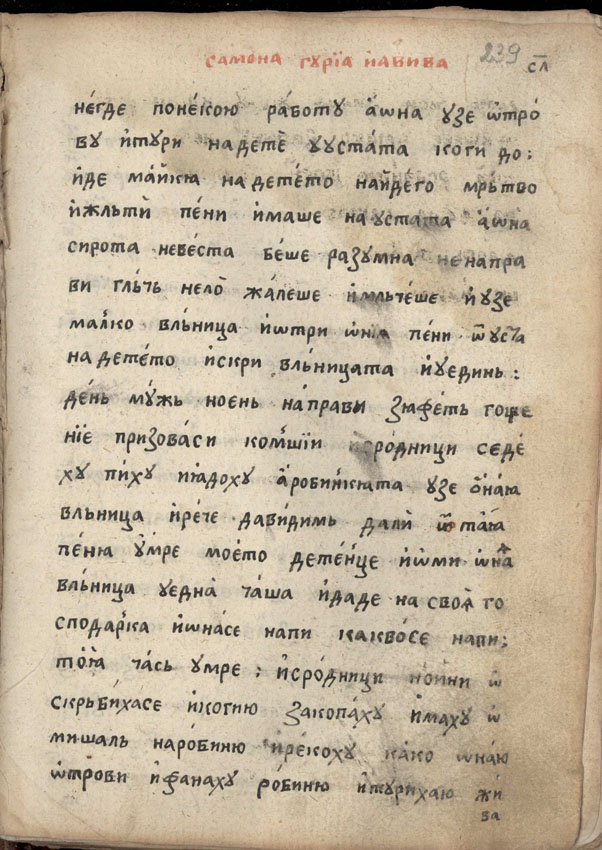 самона гурїа и҆авива 239 сл҃
не́где поне́кою ра́боту а҆́ѡна узе ѿтро́
ву и҆тури надетѐ ууста́та коги до:
и҆́де ма́икꙗ надете́то на́идего мрьтво
и҆жльти́ пе́ни и҆маше на устата а҆́ѡна
сирота неве́ста бе́ше разумна ненапра
ви глъ́чь нело̀ жа́леше и҆мльче́ше и҆узе
ма́лко вль́ница и҆ѡтри ѡ҆нїꙗ пе́ни ѿуста
на дете́то и҆скри вль́ницата и҆уединь:
де́нь му́жь ное́нь на́прави зїафе́ть гоще
нїе призова́си ко́мшїи исро́дници седе́
ху пи́ху иꙗ҆доху а҆робинкꙗта узе ѻ҆на́ю
вльница и҆рече дави́димь далѝ ѿ таꙗ
пе́ню у҆мре мое́то дете́нце и҆ѡ҆ми ѡ҆на
вль́ница уедна̀ ча́ша и҆даде на своꙗ̀ го
сподарка и҆ѡна́се напи какво́се напи;
то́ꙗ ча́сь умре: и҆сро́дници но́ини ѡ҆
скрьби́хасе и҆когию закопа́ху и҆ма́ху ѡ҆
мишаль наро́биню и҆ре́коху ка́ко ѡна́ю
ѿтрови и҆фанаху ро́биню и҆туриха́ю жи́
ва